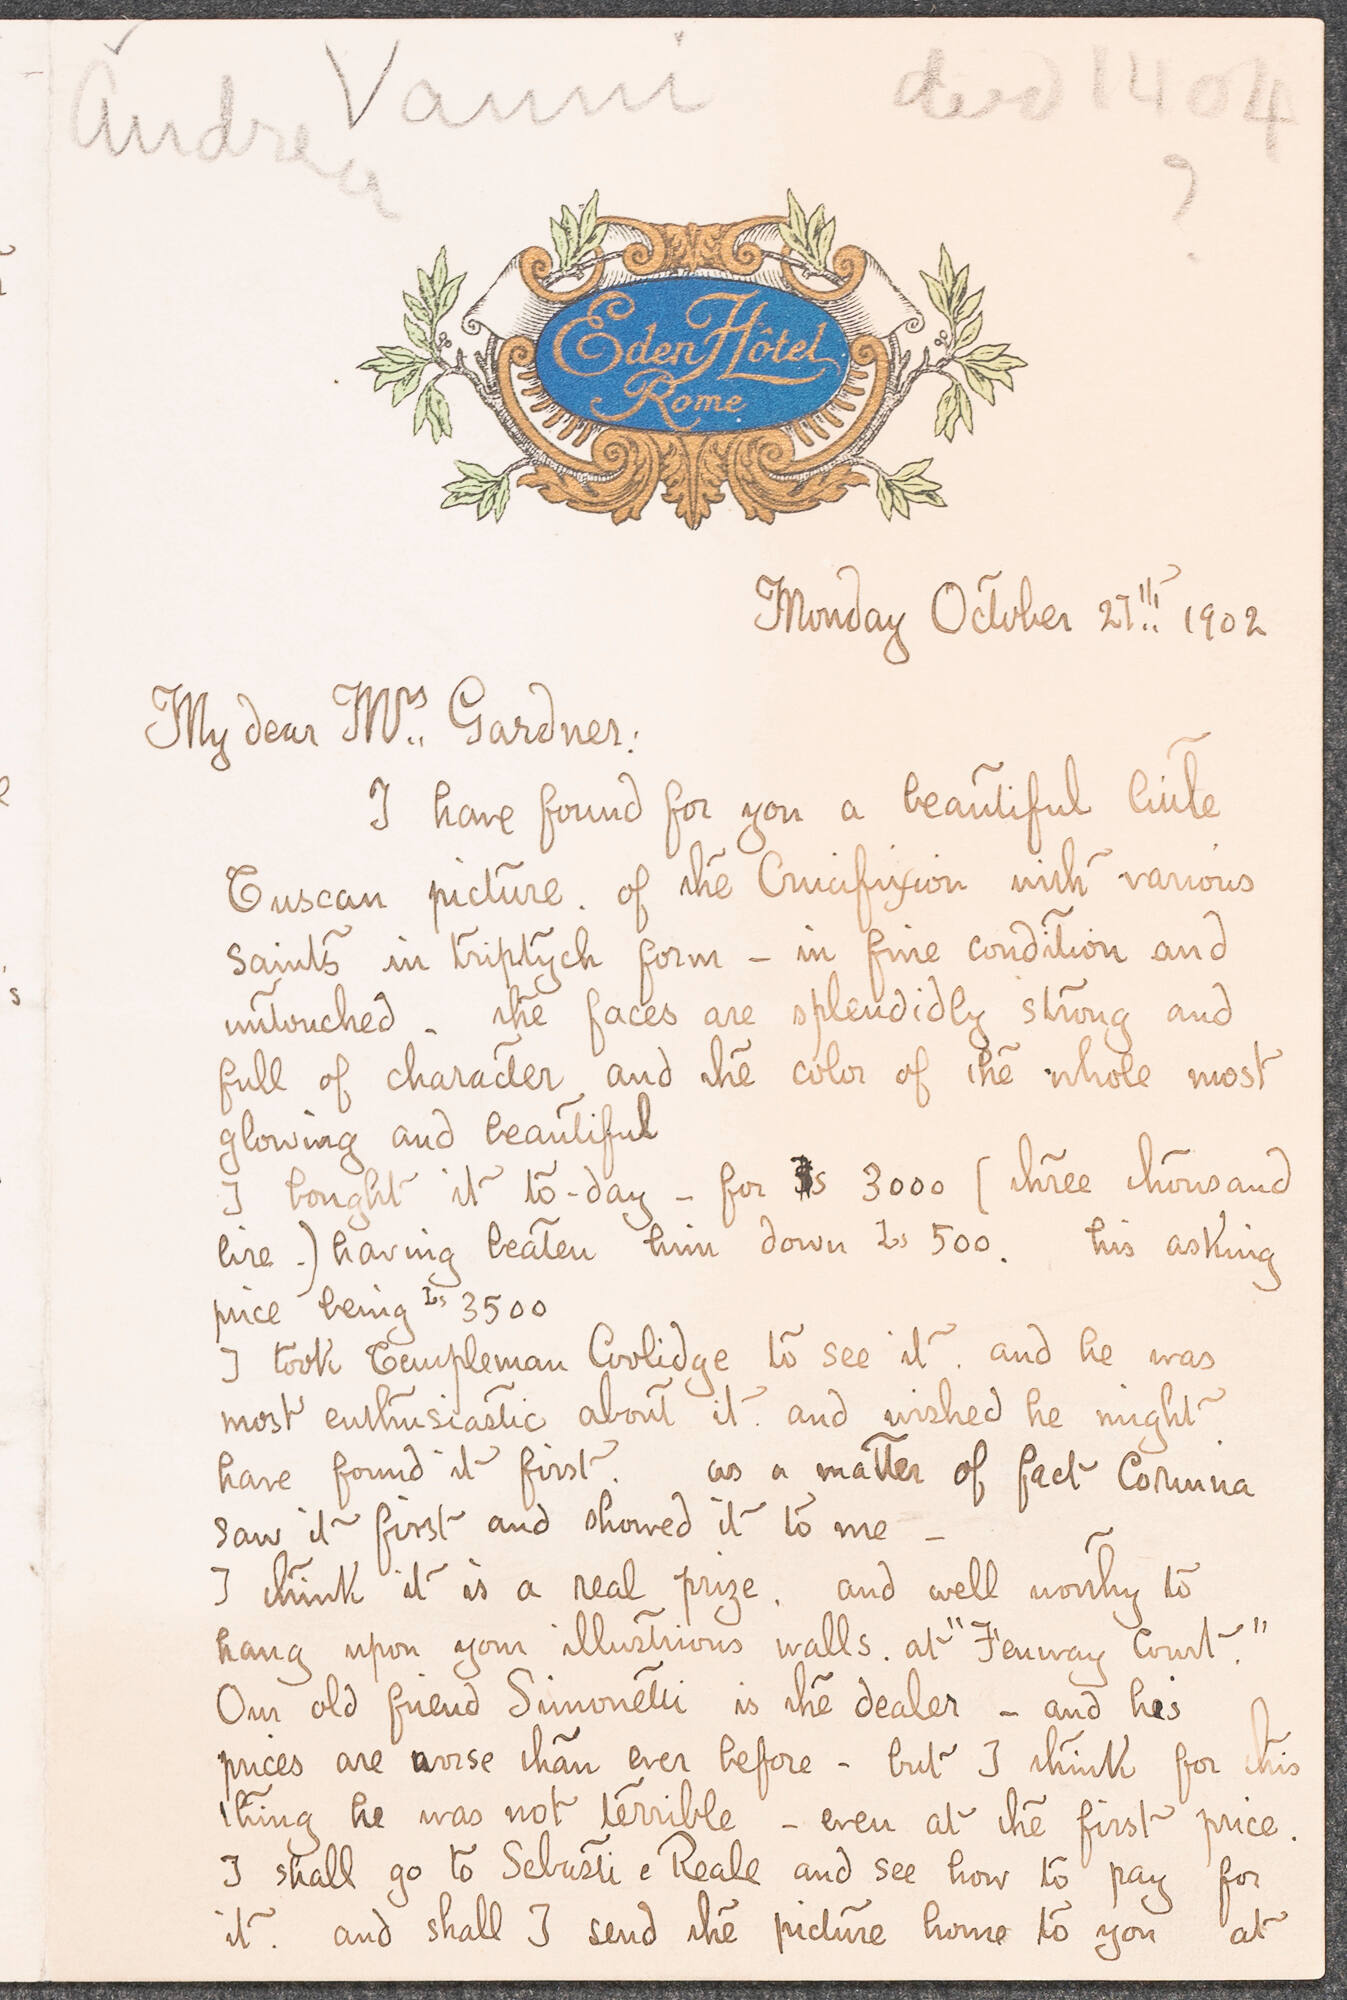 Andrea Vanni died 1404
?
Eden Hôtel
Rome
Monday October 27th 1902
My dear Mrs Gardner:
I have found for you a beautiful little
Tuscan picture. of the Crucifixion with various
saints in triptych form – in fine condition and
untouched – the faces are splendidly strong and
full of character and the color of the whole most
glowing and beautiful
I bought it to-day – for Ls 3000 (three thousand
lire.) having beaten him down Ls 500. his asking
price being Ls 3500
I took Templeman Coolidge to see it. and he was
most enthusiastic about it. and wished he might
have found it first. as a matter of fact Corinna
saw it first and showed it to me –
I think it is a real prize. and well worthy to
hang upon your illustrious walls. at "Fenway Court."
Our old friend Simonetti is the dealer – and his
prices are worse than ever before – but I think for this
thing he was not terrible – even at the first price.
I shall go to Sebasti e Reale and see how to pay for
it. and shall I send the picture home to you at